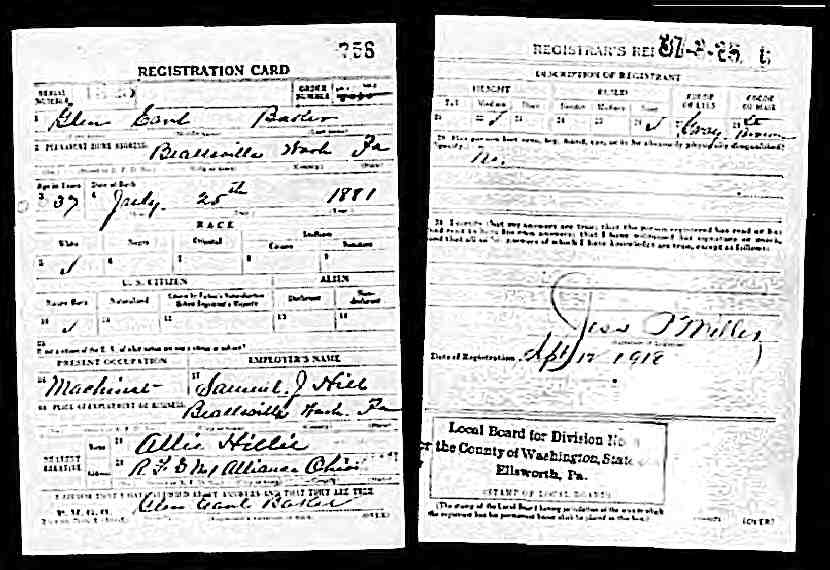 258
REGISTRATION CARD
SERIAL NUMBER
ORDER NUMBER
1 Glen Earl Baker
2 PERMANENT HOME ADDRESS:
Beallsville Wash Pa
Age in Years
Date of Birth
3 37 4 July 25th 1881
RACE
White Negro Oriental Indian
Citizen
5 ✓ 6 7 8 9
U. S. CITIZEN ALIEN
Native Born Naturalized Citizen by Father's Naturalization Before Registrant's Majority Declarant Non-declarant
10 ✓ 11 12 13 14
15
If not a citizen of the U. S., of what nation are you a citizen or subject?
PRESENT OCCUPATION EMPLOYER'S NAME
16 Machinist 17 Samuel J Hill
18 PLACE OF EMPLOYMENT OR BUSINESS:
Beallsville Wash. Pa
NEAREST RELATIVE
Name 19 Allie Hillie
Address 20 R.F.D No 1 Alliance Ohio
I AFFIRM THAT I HAVE VERIFIED ABOVE ANSWERS AND THAT THEY ARE TRUE
P. M. G. O.
Glen Earl Baker
(OVER)
REGISTRAR'S REPORT
DESCRIPTION OF REGISTRANT
HEIGHT BUILD COLOR OF EYES COLOR OF HAIR
Tall Medium Short Slender Medium Stout
21 22 ✓ 23 24 25 26 ✓ 27 Gray 28 Brown
29 Has person lost arm, leg, hand, eye, or is he obviously physically disqualified?
(Specify.)
No.
30. I certify that my answers are true; that the person registered has read or has
had read to him his own answers; that I have witnessed his signature or mark,
and that all of his answers of which I have knowledge are true, except as follows:
Miller
Date of Registration Sept 12 1918
Local Board for Division No.
for the County of Washington, State
Ellsworth, Pa.
(STAMP OF LOCAL BOARD)
(The stamp of the Local Board having jurisdiction of the area in which
the registrant has his permanent home shall be placed in this box.)
(OVER)